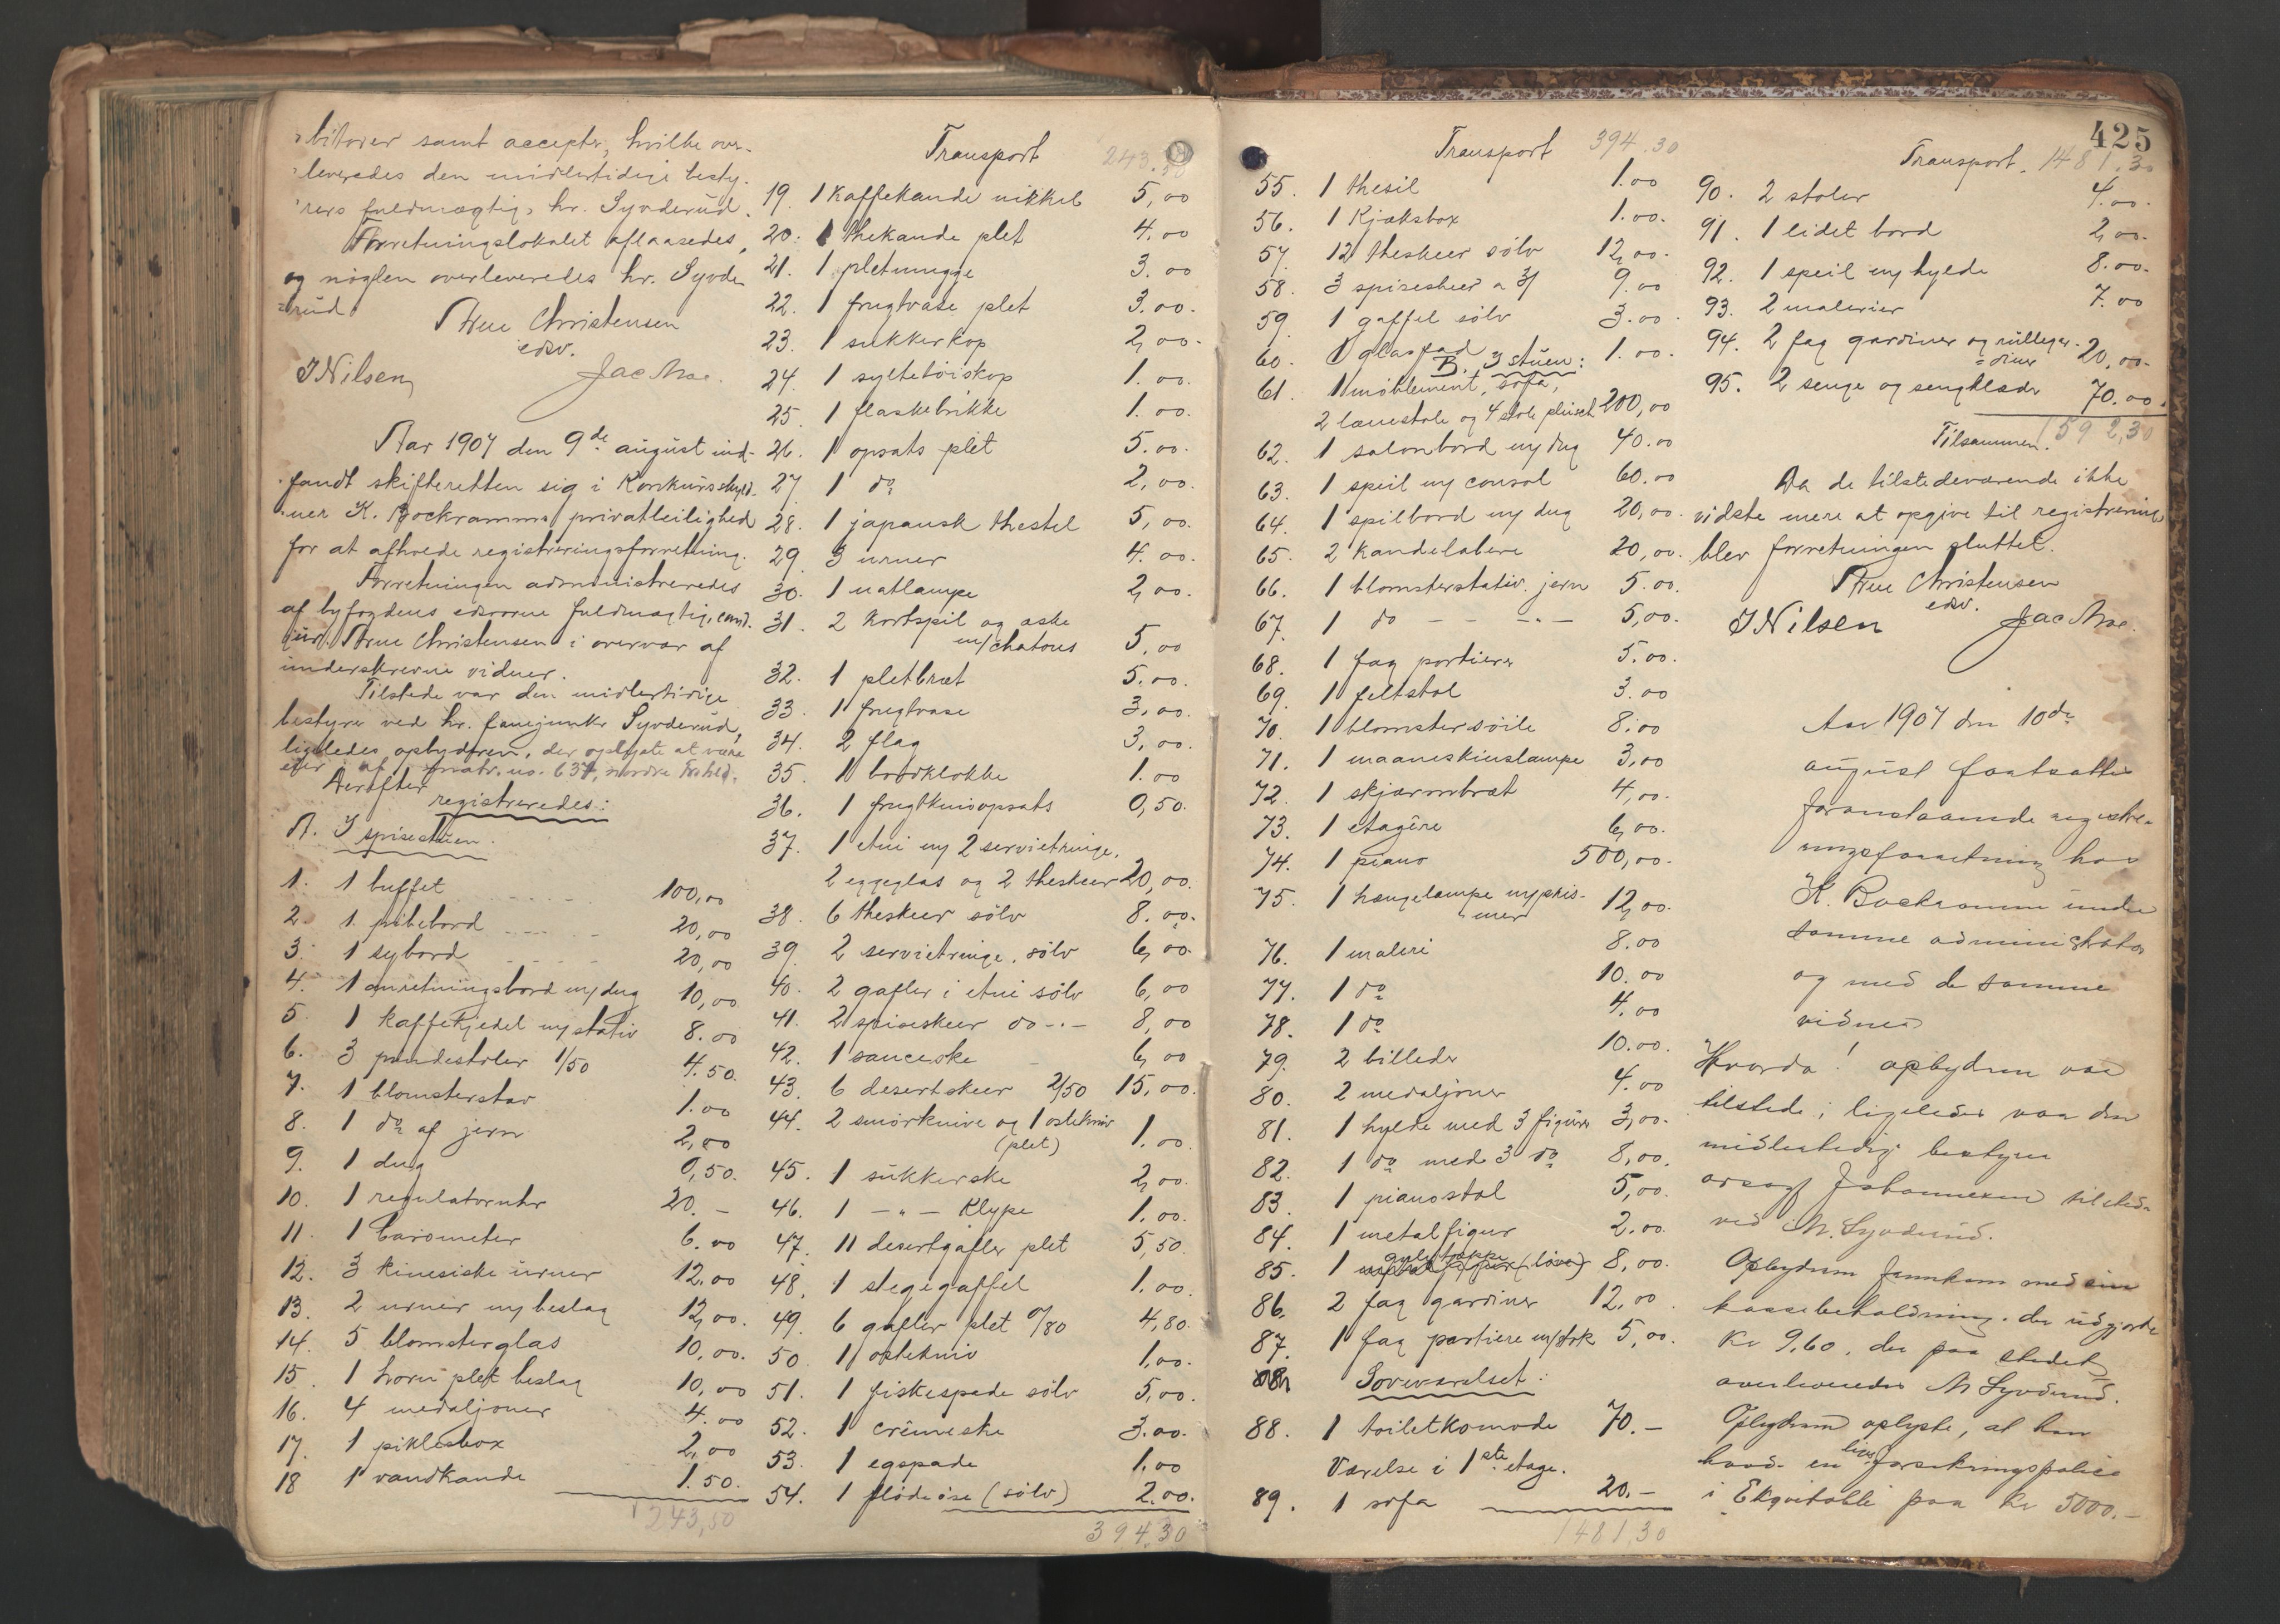 bitorer samt accepter, hvilke over-
leveredes den midlertidige besty-
rers fuldmægtig, hr. Syvderud.
Forretningslokalet aflaasedes,
og nøglen overleveredes hr. Syvde-
rud.
Arne Christensen
edsv.
J Nilsen
Jac Moe.
Aar 1907 den 9de august ind-
fandt skifteretten sig i Konkursskyld-
ner K. Bockramms privatleilighed
for at afholde registreringsforretning.
Forretningen administreredes
af byfogdens edsvorne fuldmægtig, cand.
jur. Arne Christensen i overvær af
underskrevne vidner.
Tilstede var den midlertidige
bestyrer ved hr. fanejunker Syvderud,
ligeledes opbyderen, der oplyste at være
eier af matr. no. 637, nordre
Derefter
registreredes:
A. I spisestuen.
1. 1 buffet 100,00
2. 1 pibebord 20,00
3. 1 sybord 20,00
4. 1 anretningsbord m/dug 10,00
5. 1 kaffekjedel m/stativ 8.00
6. 3 pindestoler 1/50 4.50.
7. 1 blomsterstav 1.00
8. 1 do af jern 2,00
9. 1 dug 0,50.
10. 1 regulatoruhr 20.-
11. 1 barometer 6.00
12. 3 kinesiske urner 12.00
13. 2 urner m/beslag 12,00.
14. 5 blomsterglas 10,00.
15. 1 horn plet beslag 10,00
16. 4 medaljoner 4.00
17. 1 piklesbox 2,00
18 1 vandkande 1.50.
243,50
Transport 243.50
19. 1 kaffekande nikkel 5,00
20. 1 thekande plet 4.00
21. 1 pletmugge 3.00
22. 1 frugtvase plet 3.00.
23. 1 sukkerkop 2,00.
24. 1 syltetøiskop 1.00.
25. 1 flaskebrikke 1.00.
26. 1 opsats plet 5.00.
27. 1 do 2,00.
28. 1 japansk thestel 5,00.
29. 3 urner 4.00.
30. 1 natlampe 2,00.
31. 2 kortspil og æske
m/chatons 5,00
32. 1 pletbræt 5.00.
33. 1 frugtvase 3,00.
34. 2 flag 3,00.
35. 1 bordklokke 1.00
36. 1 frugtknivopsats 0,50.
37. 1 etui m/ 2 servietringe,
2 eggeglas og 2 theskeer 20,00.
38. 6 theskeer sølv 8.00.
39. 2 servietringe, sølv 6,00.
40. 2 gafler i etui sølv 6,00
41. 2 spiseskeer do -"- 8,00
42. 1 sauceske 6,00
43. 6 desertskeer 2/50 15,00.
44. 2 smørknive og 1 ostekniv
(plet) 1.00.
45. 1 sukkerske 2,00.
46. 1 -"- klype 1.00.
47. 11 desertgafler plet 5,50.
48. 1 stegegaffel 1.00.
49. 6 gafler plet 0/80 4,80.
50. 1 ostekniv 1,00.
51. 1 fiskespade sølv 5,00.
52. 1 crêmeske 3.00.
53. 1 egspade 1.00
54. 1 flødeøse (sølv) 2.00.
394.30
425
Transport 394.30
55. 1 thesil 1.00
56. 1 kjæksbox 1.00.
57. 12 theskeer sølv 12,00.
58. 3 spiseskeer a 3/ 9.00
59. 1 gaffel sølv 3.00.
60. 1 glasfad 1.00.
B. I stuen:
61. 1 møblement, sofa,
2 lænestole og 4 stole plüsch 200,00
62. 1 salonbord m/dug 40.00
63. 1 speil m/ consol 60.00
64. 1 spilbord m/ dug 20,00.
65. 2 kandelabere 20,00.
66. 1 blomsterstativ jern 5.00.
67. 1 do - - -"- 5,00.
68. 1 fag portierer 5.00.
69. 1 feltstol 3.00
70. 1 blomstersøile 8.00
71. 1 maaneskinslampe 3,00
72. 1 skjærmbræt 4,00.
73. 1 etagêre 6,00.
74. 1 piano 500,00.
75. 1 hængelampe m/pris-
mer 12,00.
76. 1 maleri 8.00
77. 1 do 10.00
78. 1 do 4.00
79. 2 billeder 10.00.
80. 2 medaljoner 4.00
81. 1 hylde med 3 figurer 3,00.
82. 1 do med 3 do 8,00.
83. 1 pianostol 5,00.
84. 1 metalfigur 2.00.
gulvtæppe
85. 1 metalfigur (løve) 8,00.
86. 2 fag gardiner 12,00.
87. 1 fag portiere m/stk 5,00.
Soveværelset:
88. 1 toiletkomode 70.-
Værelse i 1ste etage.
89. 1 sofa 20.-
1481.30
Transport. 1481,30
90. 2 stoler 4.00.
91. 1 lidet bord 2,00.
92. 1 speil m/hylde 8.00.
93. 2 malerier 7.00
94. 2 fag gardiner og rullegar-
diner 20,00.
95. 2 senge og sengklæder 70.00.
Tilsammen. 1592,30
Da de tilstedeværende ikke
vidste mere at opgive til registrering,
blev forretningen sluttet.
Arne Christensen
edsv.
J Nilsen
Jac Moe.
Aar 1907 den 10de
august fortsattes
foranstaaende registre-
ringsforretning hos
K. Bockramm under
samme administrator
og med de samme
vidner
Hvorda! opbyderen var
tilstede; ligeledes var den
midlertidige bestyrer
orsagf Johannesen tilstede
ved Hr. Syvderud.
Opbyderen fremkom med sin
kassebeholdning, der udgjorde
Kr 9,60, der paa stedet
overleveredes Hr Syvderud.
Opbyderen oplyste, at han
havde en livsforsikringspolice
i Ekqvitable paa Kr 5000.-